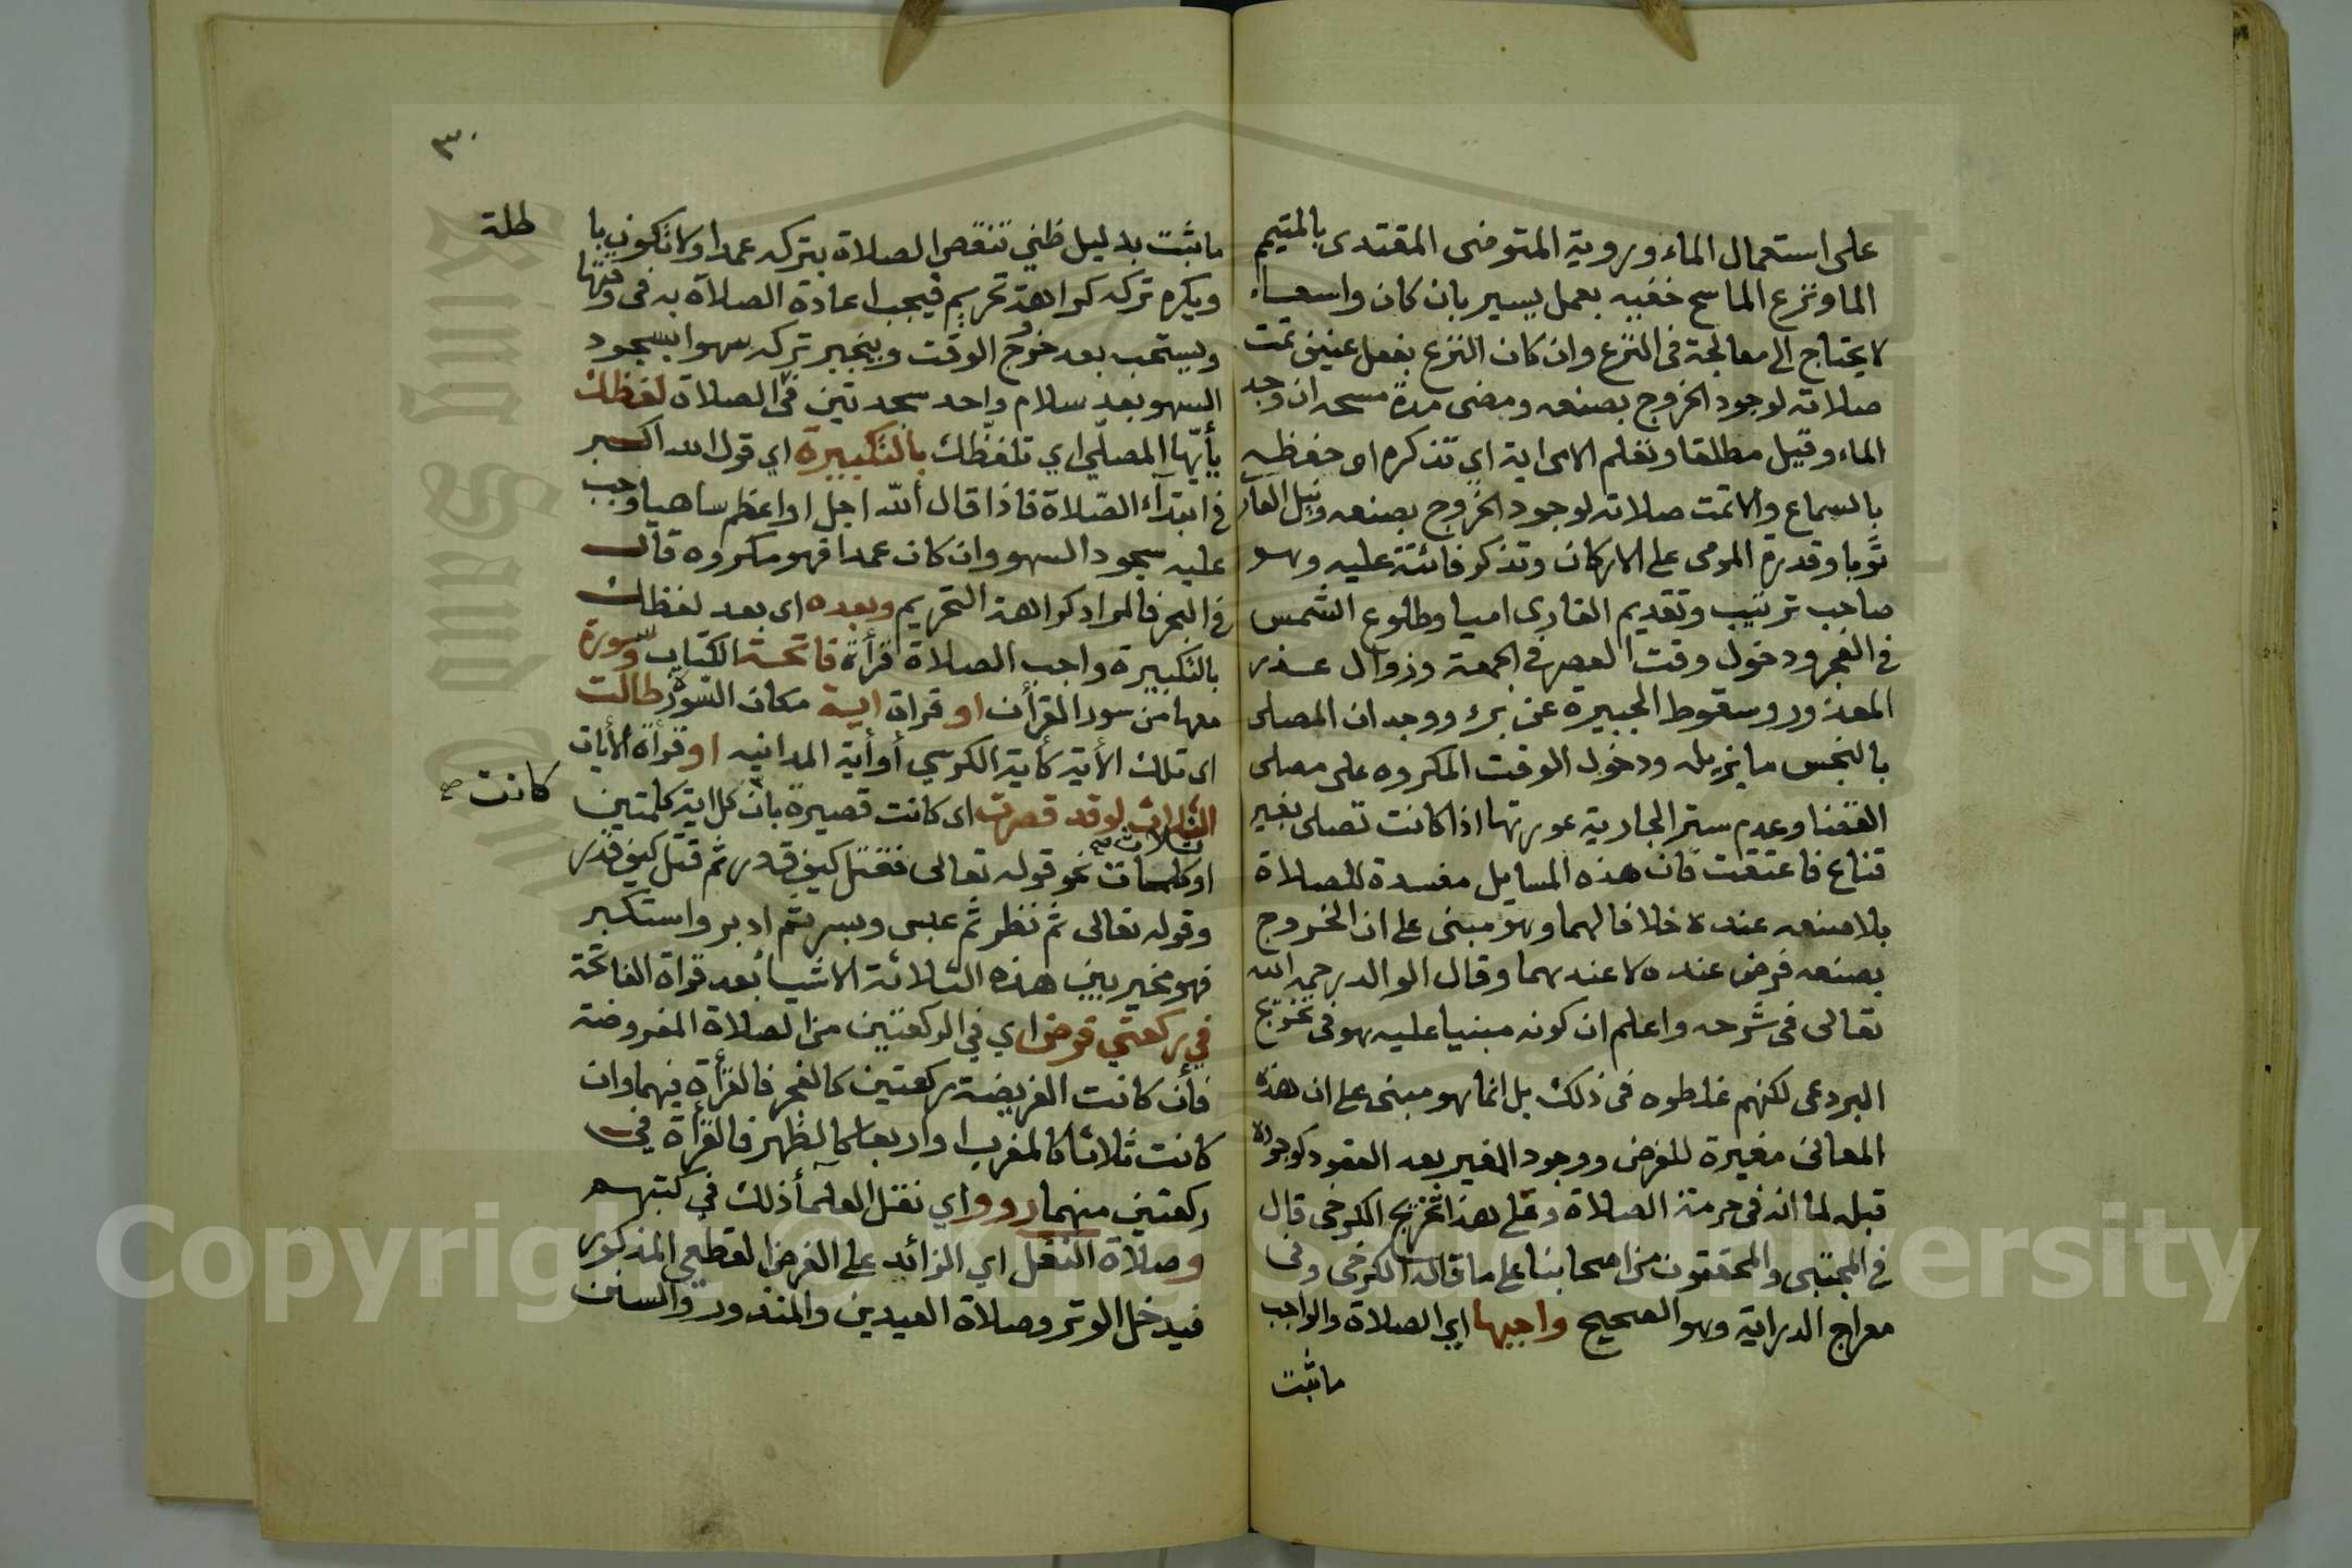 على استعمال الماء وروية المتوضى المقتدى بالمتيمم
الما ونزع الماسح خفيه بعمل يسير بان كان واسعا
لا يحتاج الى معالجة فى النزع وان كان النزع بفعل عنيف تمت
صلاته لوجود الخروج بصنعه ومضى مدة مسحه ان وجد
الماء وقيل مطلقا وتعلم الامى اية اي تذكره او حفظه
بالسماع والا تمت صلاته لوجود الخروج بصنعه ونيل العار
ثوبا وقدرة المومى على الاركان وتذكر فائتة عليه وهو
صاحب ترتيب وتقديم القارى اميا وطلوع الشمس
فى الفجر ودخول وقت العصر فى الجمعة وزوال عذر
المعذور وسقوط الجبيرة عن برء ووجدان المصلى
بالنجس ما يزيله ودخول الوقت المكروه على مصلى
القضا وعدم ستر الجارية عورتها اذا كانت تصلى بغير
قناع فاعتقت فان هذه المسايل مفسدة للصلاة
بلا صنعه عنده خلافا لهما وهو مبنى على ان الخروج
بصنعه فرض عنده لا عندهما وقال الوالد رحمه الله
تعالى فى شرحه واعلم ان كونه مبنيا عليه هو فى تخريج
البردعى لكنهم غلطوه فى ذلك بل انما هو مبنى على ان هذه
المعانى مغيرة للفرض ووجود المغير بعد القعود كوجوده
قبله لما انه فى حرمة الصلاة وعلى هذا تخريج الكرخى قال
فى المجتبى والمحققون من اصحابنا على ما قاله الكرخى وفى
معراج الدراية وهو الصحيح واجبها اي الصلاة والواجب
ما ثبت
٣٠
ما ثبت بدليل ظني تنقص الصلاة بتركه عمدا ولا تكون با
طلة
ويكره تركه كراهة تحريم فيجب اعادة الصلاة به فى وقتها
ويستحب بعد خروج الوقت وينجبر تركه سهوا بسجود
السهو بعد سلام واحد سجدتين فى الصلاة لفظك
يأيها المصلي اي تلفظك بالتكبيرة اي قول الله اكبر
فى ابتداء الصلاة فاذا قال الله اجل او اعظم ساهيا وجب
عليه سجود السهو وان كان عمدا فهو مكروه قال
فى البحر فالمراد كراهة التحريم وبعده اى بعد لفظك
بالتكبيرة واجب الصلاة قرأة فاتحة الكتاب وسورة
معها من سور القرأن او قراة اية مكان السورة طالت
اى تلك الأية كأية الكرسي أو أية المداينه او قرأة الأيات
الثلاث لو قد قصرت اى كانت قصيرة بأن كل اية كلمتين
كانت صح
او ثلاث صح كلمات نحو قوله تعالى فقتل كيف قدر ثم قتل كيف قدر
وقوله تعالى ثم نظر ثم عبس وبسر ثم ادبر واستكبر
فهو مخير بين هذه الثلاثة الاشيا بعد قراة الفاتحة
في ركعتي فرض اي في الركعتين من الصلاة المفروضة
فأن كانت الفريضة ركعتين كالفجر فالقرأة فيهما وان
كانت ثلاثا كالمغرب او اربعا كالظهر فالقرأة في
ركعتين منهما رووا اي نقل العلمآ ذلك في كتبهم
وصلاة النفل اي الزائد على الفرض القطعي المذكور
فيدخل الوتر وصلاة العيدين والمنذور والسنن
Copyright © King Saud University